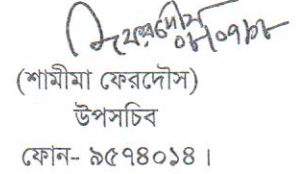 (শামীমা ফেরদৌস)
উপসচিব
ফোন- ৯৫৭৪০১৪।